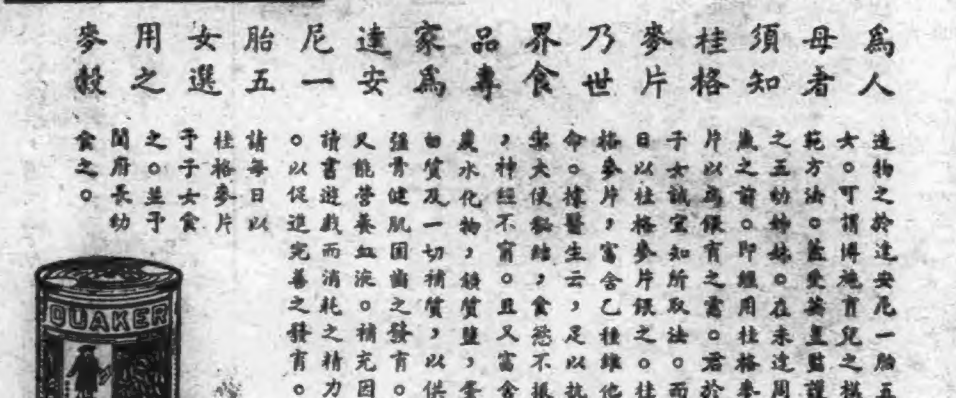 為人
母者
須知
桂格
麥片
乃世
界食
品專
家為
達安
尼一
胎五
女選
用之
麥穀
造物之於達安尼一胎五
女。可謂博施育兒之模
範方法。蓋受英皇監護
之五幼姊妹。在未達周
歲之前。即經用桂格麥
片以為餵育之需。君於
子女誠宜知所取法。而
日以桂格麥片餵之。桂
格麥片，富含乙種維他
命。據醫生云，足以抗
禦大便秘結，食慾不振
，神經不甯。且又富含
炭水化物，鐵質鹽，蛋
白質及一切補質，以供
強骨健肌固齒之發育。
又能營養血液。補充因
讀書遊戲而消耗之精力
。以促進完善之發育。
請每日以
桂格麥片
予子女食
之。並予
闔府長幼
食之。
QUAKER